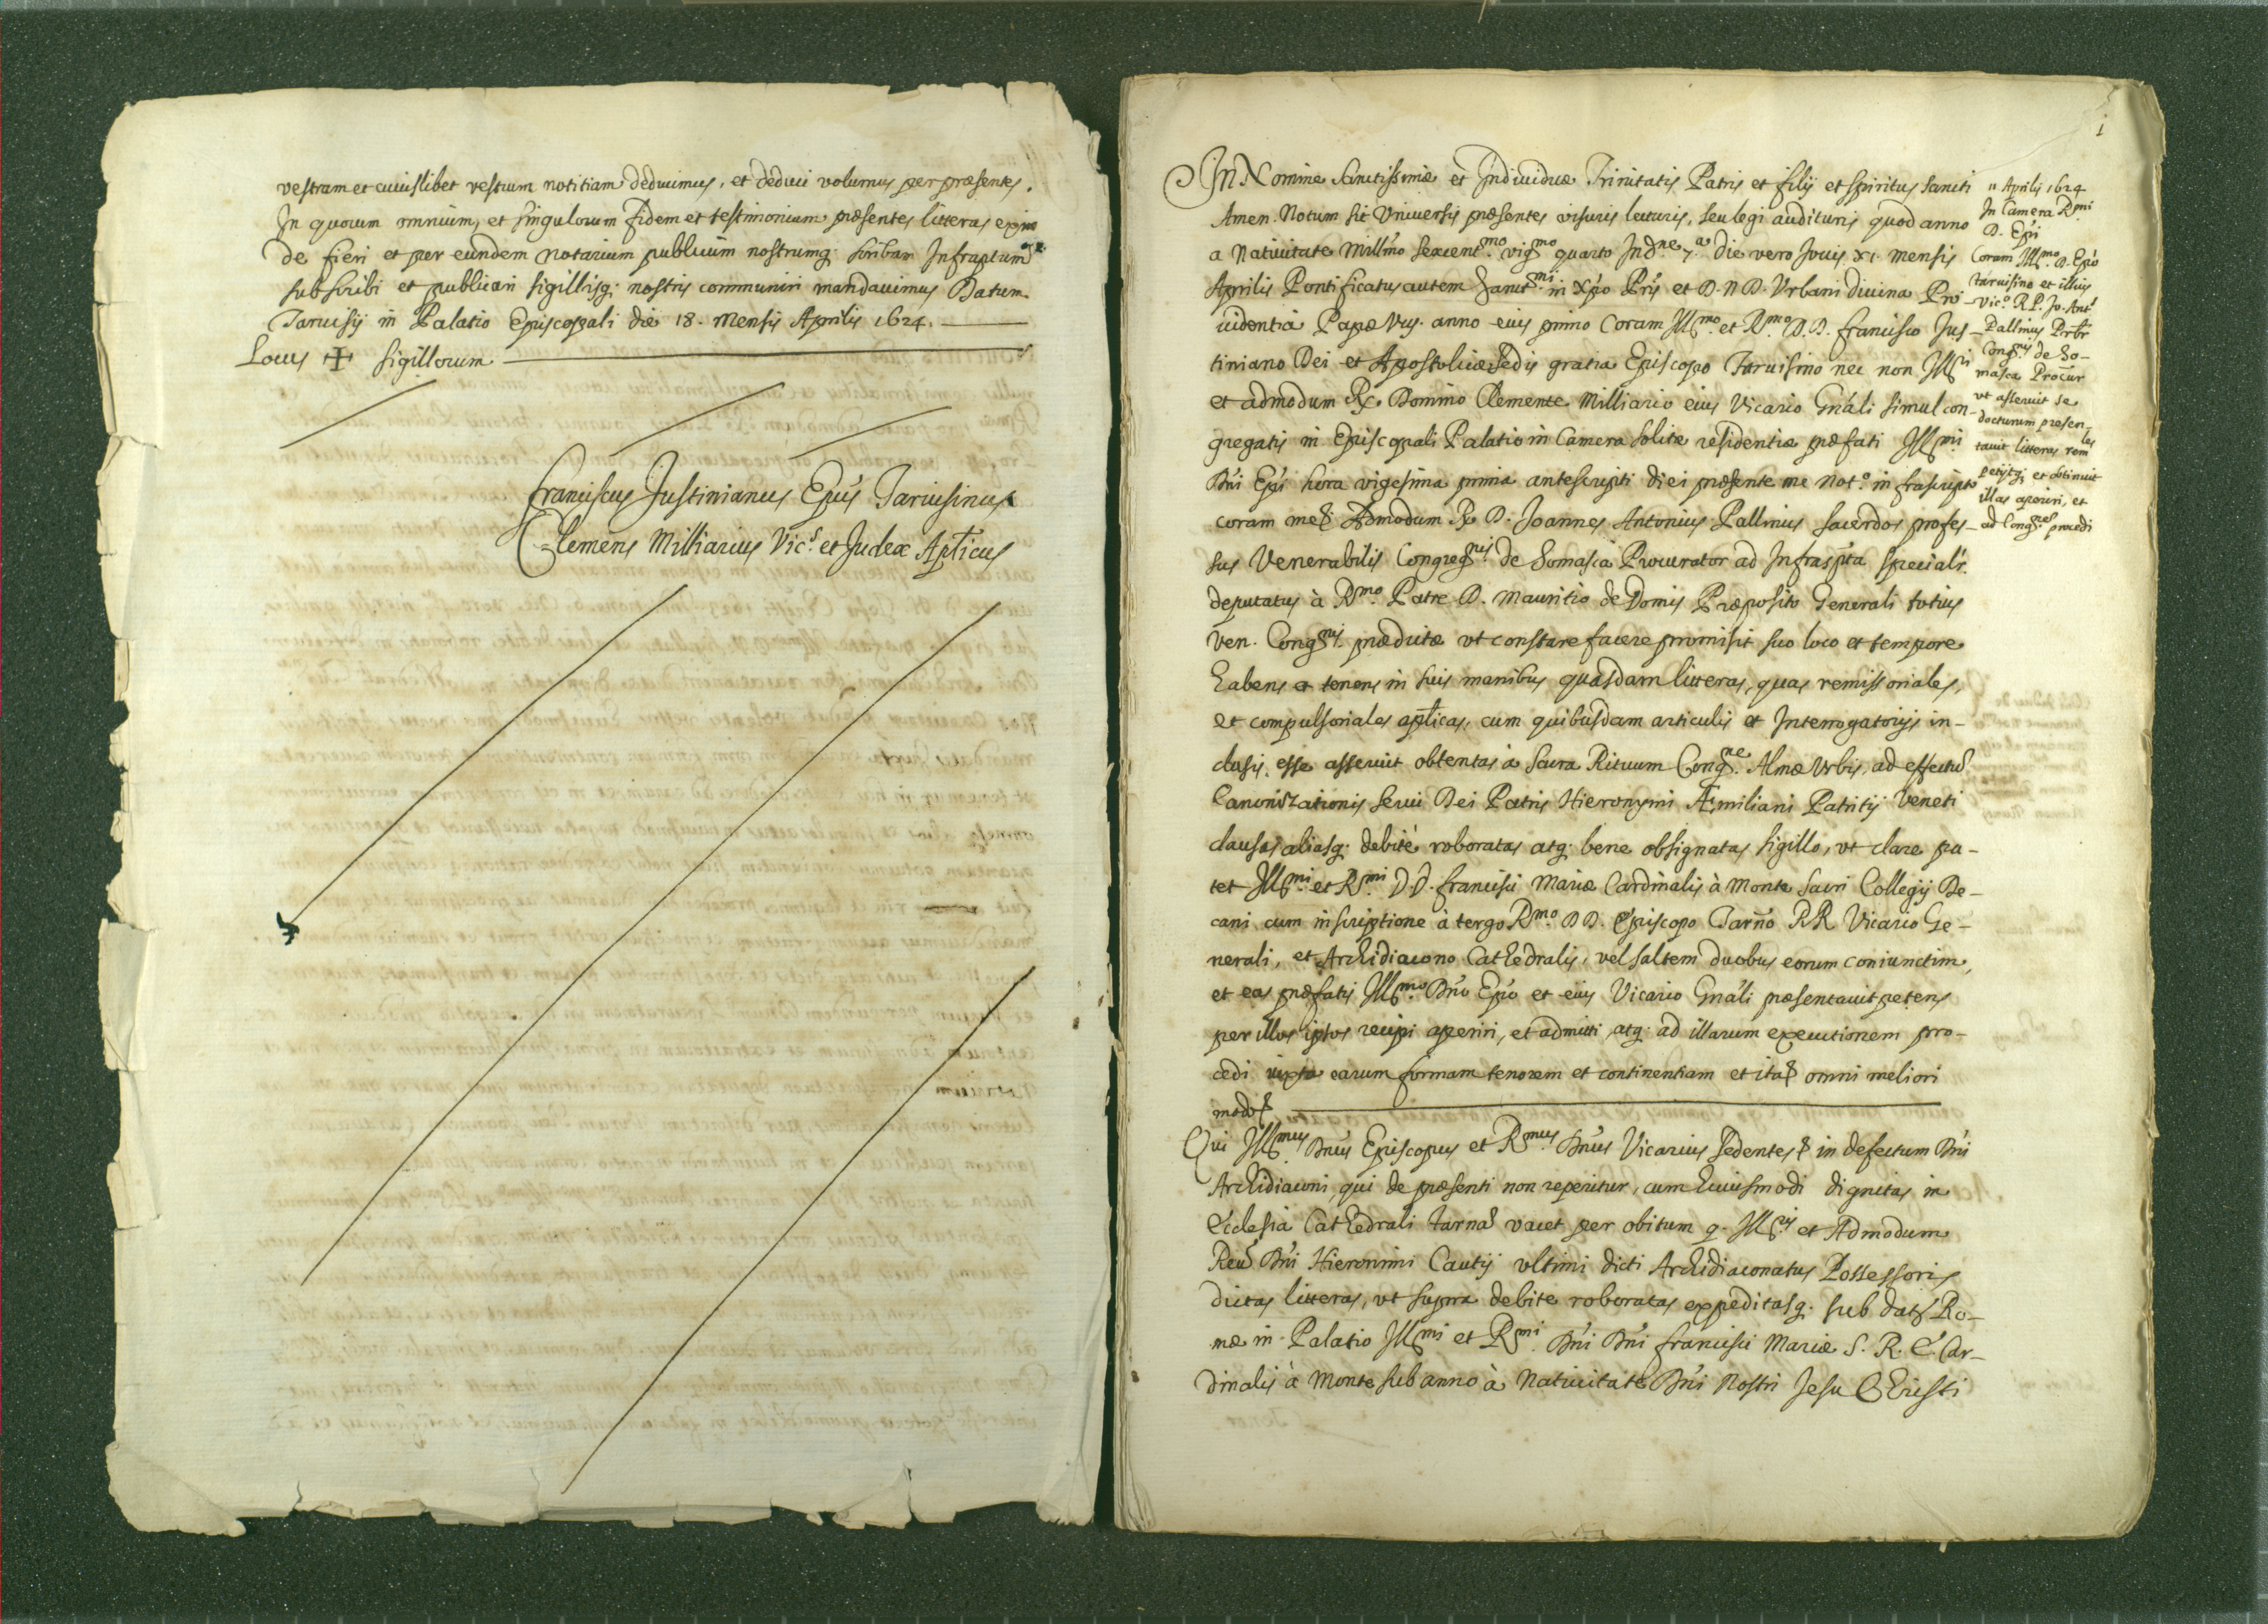 vestram et cuiuslibet vestrum notitiam deducimus, et deduci volumus per præsentes.
In quorum omnium, et singulorum fidem et testimonium præsentes litteras exin
de fieri et per eundem notarium publicum nostrumq. scribam Infraptum
subscribi et publicari sigillisq. nostris communiri mandauimus Datum
Taruisij in Palatio Episcopali die 18. Mensis Aprilis 1624.
Locus ✠ sigillorum
Franciscus Justinianus Epus Taruisinus
Clemens Milliarius Vics. et Judex Aplicus
1
In Nomine Sanctissimæ et Indiuiduæ Trinitatis Patris et filij et Spiritus Sancti
Amen. Notum sit Vniuersis præsentes visuris lecturis, seu legi audituris quod anno
a Natiuitate Millmo sexcentmo vigmo quarto Indne 7a die vero Jouis XI mensis
Aprilis Pontificatus autem Sanctmi in Xpo Pris et D. N D. Vrbani diuina Pro-
uidentia Papæ VIIJ. anno eius primo Coram Illmo et Rmo D.D. Francisco Jus-
tiniano Dei et Apostolicæ Sedis gratia Episcopo Taruisino nec non Illri
et admodum R. Domino Clemente Milliario eius Vicario Gnali simul con-
gregatis in Episcopali Palatio in Camera solitæ residentiæ præfati Illmi
Dni Epi hora vigesima prima antescripti diei præsente me Noto. infrascripto
coram me Admodum R. D. Joannes Antonius Pallinius sacerdos profes-
sus Venerabilis Congregnis de Somascha Procurator ad Infrascpta specialr.
deputatus à Rmo. Patre D. Mauritio de Domis Præposito Generali totius
Ven. Congnis. prædictæ vt constare facere promisit suo loco et tempore
habens et tenens in suis manibus quasdam litteras, quas remissoriales,
et compulsoriales aplicas, cum quibusdam articulis et Interrogatorijs in-
clusis, esse asseruit obtentas à Sacra Rituum Congne. Almæ Vrbis, ad effectu
Canonizationis Serui Dei Patris Hieronymi Æmiliani Patritij Veneti
clausas aliasq. debitè roboratas atq. bene obsignatas sigillo, vt clare pa-
tet Illmi. et Rmi D.D. Francisci Mariæ Cardinalis à Monte Sacri Collegij De-
cani cum inscriptione à tergo Rmo. DD. Episcopo Tarno RR Vicario Ge-
nerali, et Archidiacono Cathedralis, vel saltem duobus eorum coniunctim,
et eas præfatis Illmo. Dno Epo et eius Vicario Gnali præsentauit petens
per illos ipsos recipi aperiri, et admitti, atq. ad illarum executionem pro-
cedi iuxta earum formam tenorem et continentiam et ita omni meliori
modo
Qui Illmus Dnus Episcopus et Rmus Dnus Vicarius sedentes in defectum Dni
Archidiaconi qui de præsenti non reperitur, cum huiusmodi dignitas in
Ecclesia Cathedrali Tarna vacet per obitum q. Illris et Admodum
Reu Dni Hieronimi Cautij vltimi dicti Archidiaconatus Possessoris
dictas litteras, vt supra debite roboratas expeditasq. sub dat Ro-
mæ in Palatio Illmi et Rmi. Dni Dni Francisci Mariæ S. R. E. Car-
dinalis à Monte sub anno à Natiuitate Dni Nostri Jesu Christi
11 Aprilis 1624
In Camera Rmi
D. Epi
Coram Illmo. D. Epo
Taruisino et illius
Vico. R.P. Jo. Ant
Pallinius Prbr
Congnis de So-
masca Procur
vt asseruit se
docturum presen-
tauit litteras rem
petijtq. et obtinuit
illas aperiri, et
ad Congnes procedi